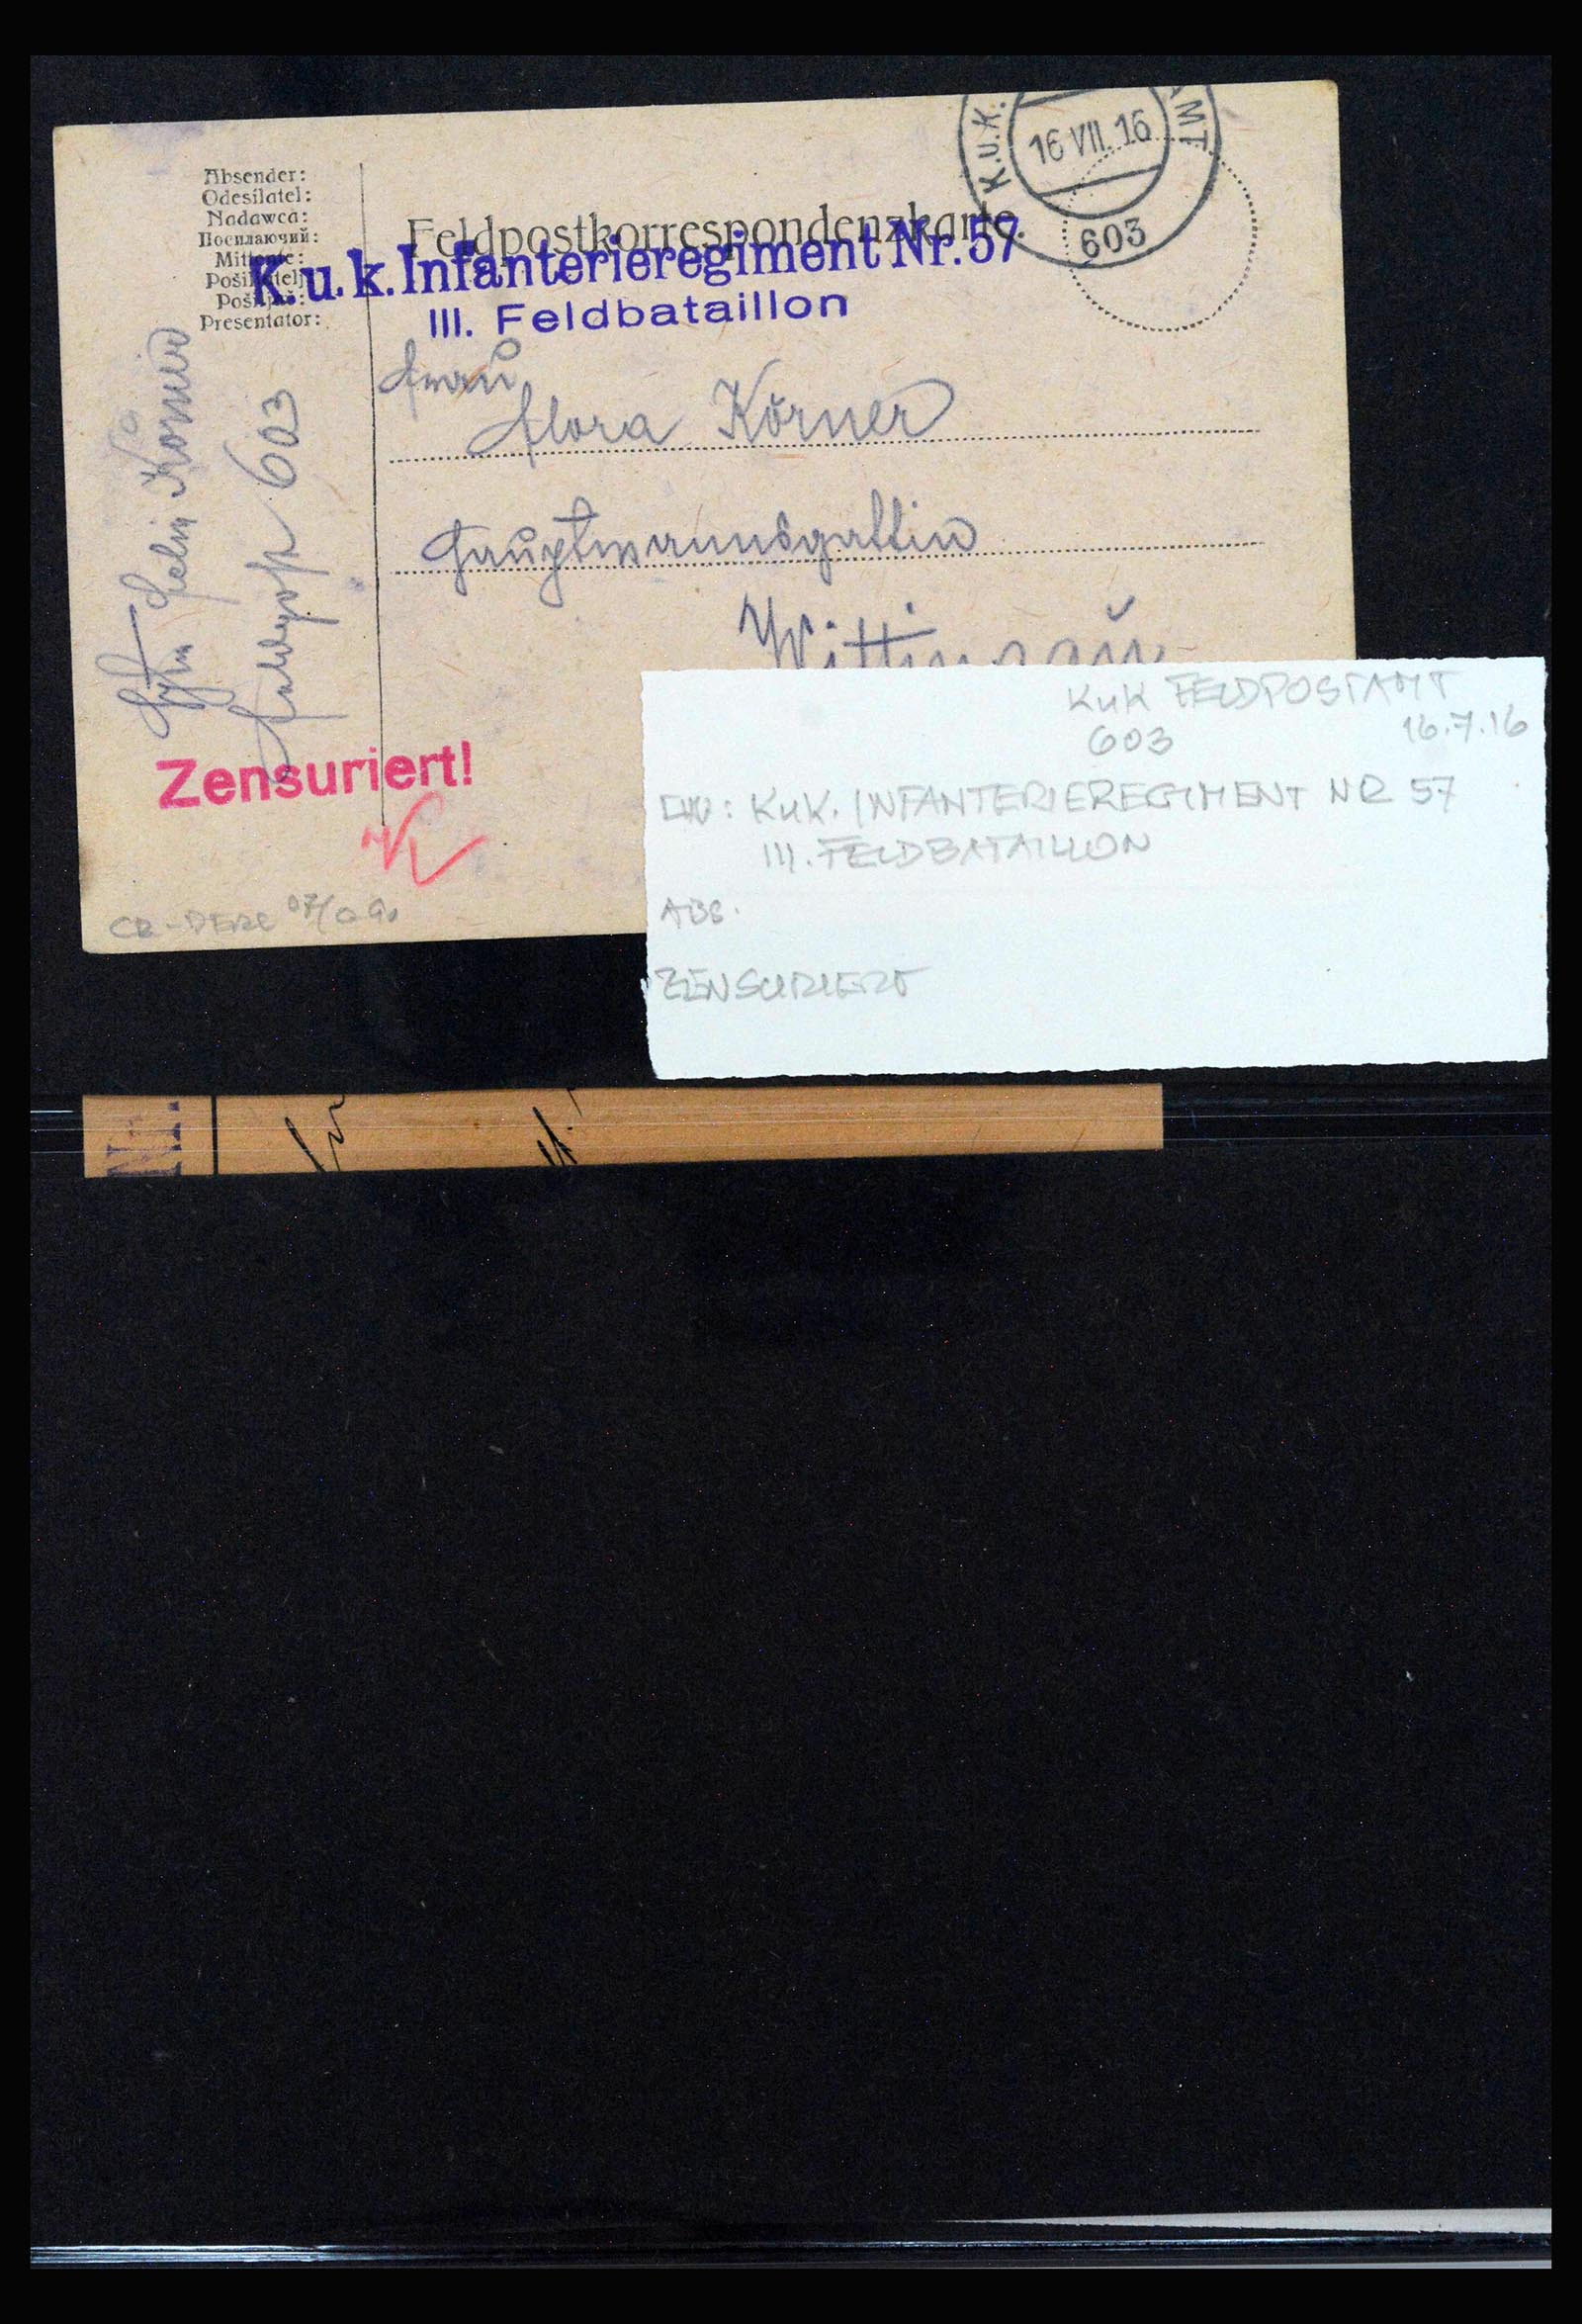 Absender:
Odesílatel:
Nadawca:
Посилаючий:
Mittente:
Pošiljatelj:
Pošiljač:
Presentator:
Feldpostkorrespondenzkarte.
K.u.K.
MT
16 VII. 16
603
K.u.k. Infanterieregiment Nr. 57
III. Feldbataillon
Frau
Flora Körner
Hauptmannsgattin
Wittingau
Felix Körner
Feldpost 603
Zensuriert!
KuK FELDPOSTAMT
603 16.7.16
KuK. INFANTERIEREGIMENT NR 57
III. FELDBATAILLON
ABS.
ZENSURIERT
Nr.